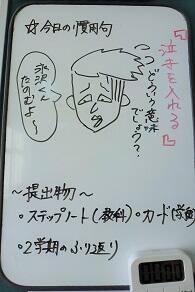 ☆今日の慣用句
『泣きを入れる』
どういう意味
でしょう?
氷沢くん
たのむよ〜
〜提出物〜
・ステップノート(教科)・カード(学習)
・2学期のふり返り